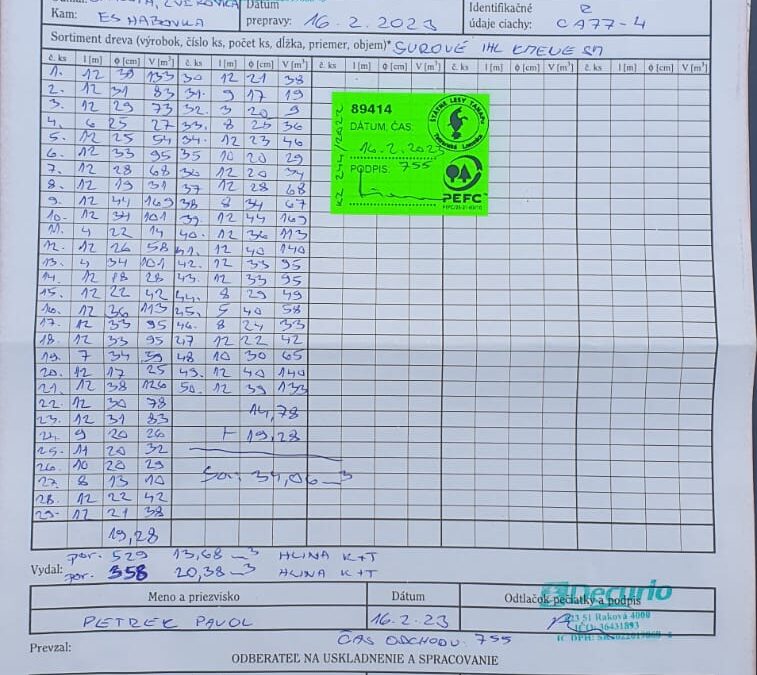 Kam: ES HABOVKA
Dátum
prepravy: 16.2.2023
Identifikačné
údaje ciachy: CA77-4
Sortiment dreva (výrobok, číslo ks, počet ks, dĺžka, priemer, objem)* SUROVÉ IHL KMENE SM
č. ks l [m] ϕ [cm] V [m³] č. ks l [m] ϕ [cm] V [m³] č. ks l [m] ϕ [cm] V [m³] č. ks l [m] ϕ [cm] V [m³] č. ks l [m] ϕ [cm] V [m³]
1. 12 39 133 30 12 21 38
2. 12 31 83 31. 9 17 19
3. 12 29 73 32. 3 20 9
4. 6 25 27 33. 8 25 36
5. 12 25 54 34. 12 23 46
6. 12 33 95 35 10 20 29
7. 12 28 68 36 12 20 34
8. 12 19 31 37 12 28 68
9. 12 44 169 38 8 34 67
10. 12 34 101 39. 12 44 169
11. 4 22 14 40. 12 36 113
12. 12 26 58 41. 12 40 140
13. 4 34 101 42. 12 33 95
14. 12 18 28 43. 12 33 95
15. 12 22 42 44. 8 29 49
16. 12 36 113 45. 5 40 58
17. 12 33 95 46. 8 24 33
18. 12 33 95 47 12 22 42
19. 7 34 59 48 10 30 65
20. 12 17 25 49. 12 40 140
21. 12 38 126 50. 12 39 133
22. 12 30 78
14,78
23. 12 31 83
24. 9 20 26
+ 19,28
25. 11 20 32
26. 10 20 29
34,06 m3
27. 8 13 10
28. 12 22 42
29. 12 21 38
19,28
89414
DÁTUM, ČAS:
16.2.2023
PODPIS: 755
KZ 244/2022
ŠTÁTNE LESY TANAPU
Tatranská Lomnica
PEFC
por. 529 13,68 m3 HLINA K+T
Vydal: por. 358 20,38 m3 HLINA K+T
Meno a priezvisko Dátum Odtlačok pečiatky a podpis
PETREK PAVOL 16.2.23
Decurio
023 51 Raková 4000
IČO: 36431893
ČAS ODCHODU: 755
Prevzal:
ODBERATEĽ NA USKLADNENIE A SPRACOVANIE